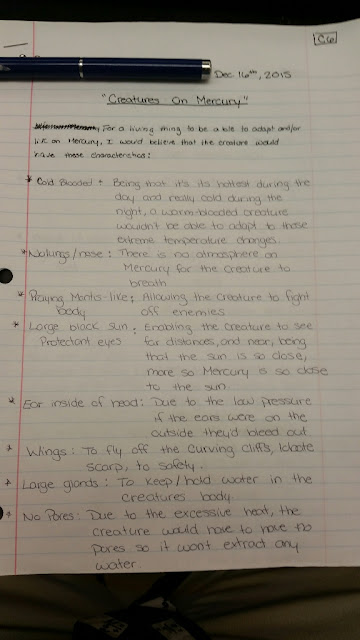 C6
Dec. 16th, 2015
"Creatures On Mercury"
For a living thing to be able to adapt and/or
live on Mercury, I would believe that the creature would
have these characteristics:
* Cold Blooded: Being that it's its hottest during the
day and really cold during the
night, a warmblooded creature
wouldn't be able to adapt to those
extreme temperature changes.
* No lungs/nose: There is no atmosphere on
Mercury for the creature to
breath
* Praying Mantis-like: Allowing the creature to fight
body off enemies
* Large black sun: Enabling the creature to see
Protectant eyes far distances, and near, being
that the sun is so close,
more so Mercury is so close
to the sun.
* Ear inside of head: Due to the low pressure
if the ears were on the
outside they'd bleed out.
* Wings: To fly off the curving cliffs,
scarp, to safety.
* Large glands: To keep/hold water in the
creatures body.
* No Pores: Due to the excessive heat, the
creature would have to have no
pores so it wont extract any
water.